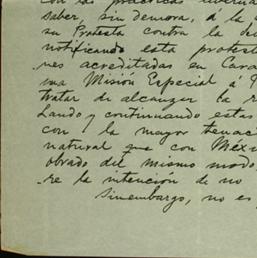 con las prácticas
saber, sin demora, á la
su Protesta contra la
notificando esta protest
nes acreditadas en Cara
ma Misión Especial á
tratar de alcanzar la r
Landó y continuando estas
con la mayor tenac
natural que con Méxi
obrado del mismo modo
re la intención de no
Sinembargo, no es